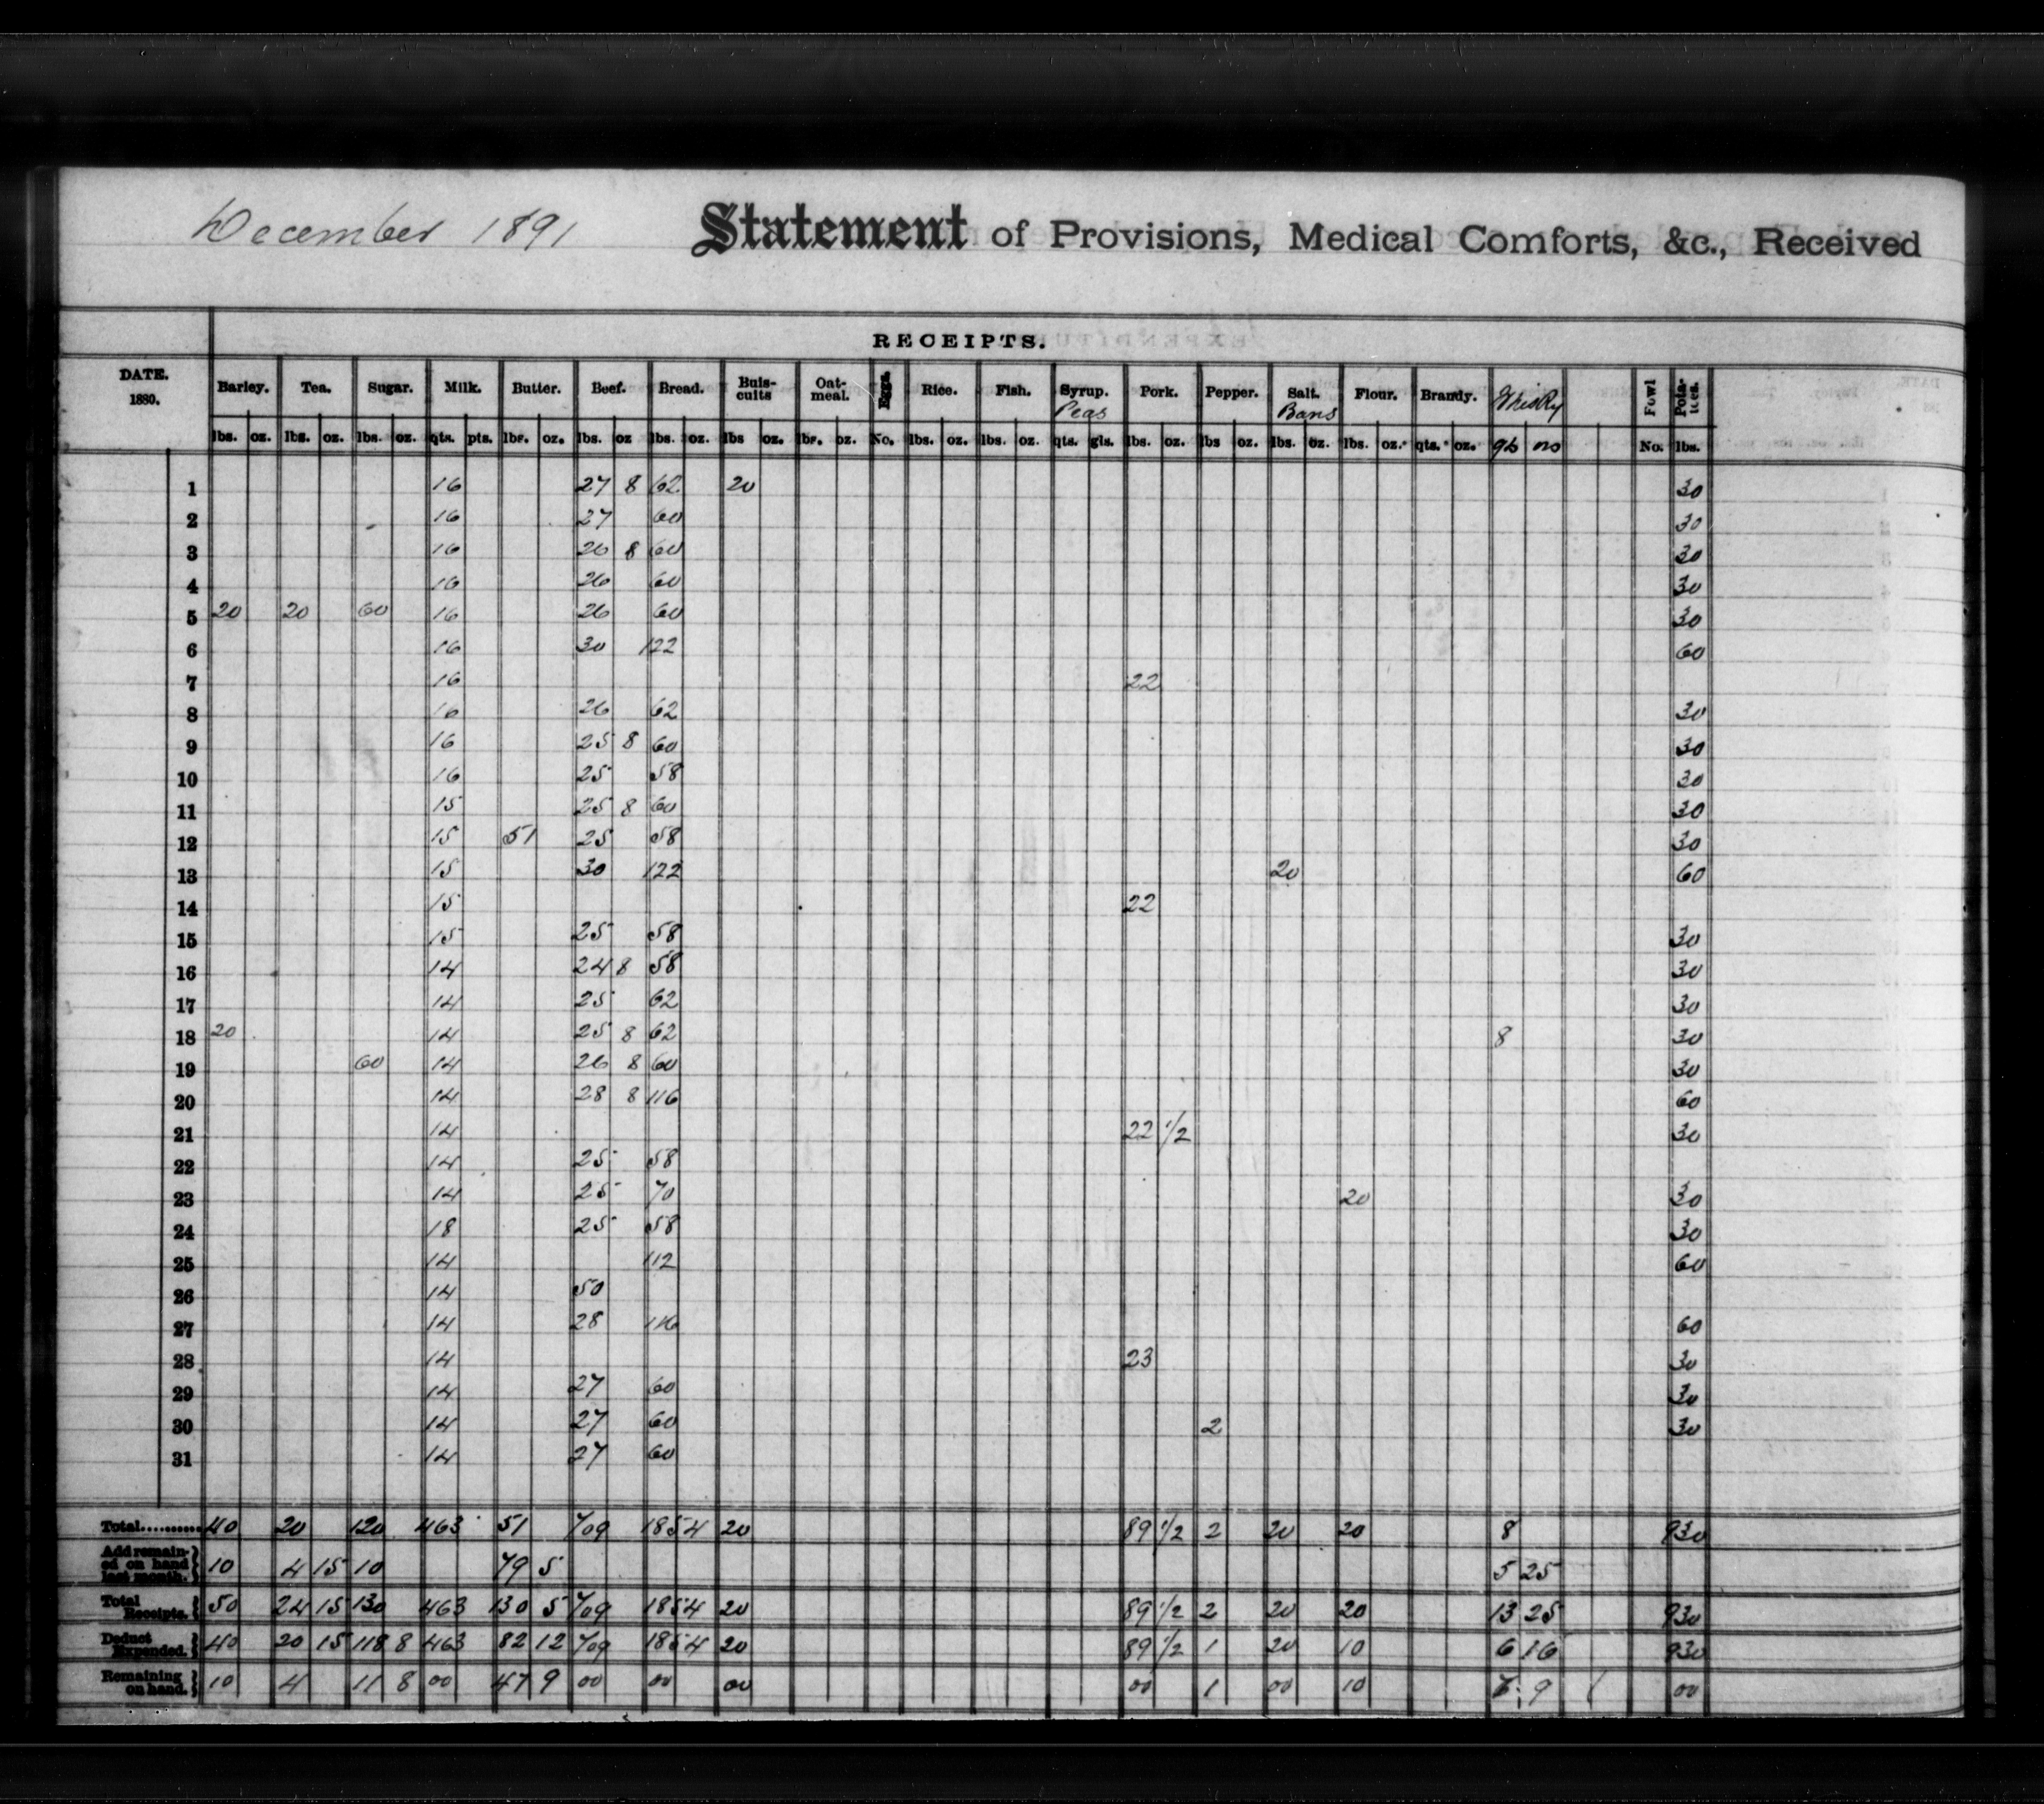 December 1891 Statement of Provisions, Medical Comforts, &c., Received
RECEIPTS.
DATE. 1880. Barley. Tea. Sugar. Milk. Butter. Beef. Bread. Buis-cuits Oat-meal. Eggs. Rice. Fish. Syrup. Peas Pork. Pepper. Salt. Bans Flour. Brandy. Whisky Fowl Pota-toes.
lbs. oz. lbs. oz. lbs. oz. qts. pts. lbs. oz. lbs. oz lbs. oz. lbs oz. lbs. oz. No. lbs. oz. lbs. oz. qts. gls. lbs. oz. lbs oz. lbs. oz. lbs. oz. qts. oz. No. lbs.
1 16 27 8 62 20 30
2 16 27 60 30
3 16 26 8 60 30
4 16 26 60 30
5 20 20 60 16 26 60 30
6 16 30 122 60
7 16 22
8 16 26 62 30
9 16 25 8 60 30
10 16 25 58 30
11 15 25 8 60 30
12 15 51 25 58 30
13 15 30 122 20 60
14 15 22
15 15 25 58 30
16 14 24 8 58 30
17 14 25 62 30
18 20 14 25 8 62 8 30
19 60 14 26 8 60 30
20 14 28 8 116 60
21 14 22 1/2 30
22 14 25 58
23 14 25 70 20 30
24 18 25 58 30
25 14 112 60
26 14 50
27 14 28 116 60
28 14 23 30
29 14 27 60 30
30 14 27 60 2 30
31 14 27 60
Total.......... 40 20 120 463 51 709 1854 20 89 1/2 2 20 20 8 930
Add remain-ed on hand last month. 10 4 15 10 79 5 5 25
Total Receipts. 50 24 15 130 463 130 5 709 1854 20 89 1/2 2 20 20 13 25 930
Deduct Expended. 40 20 15 118 8 463 82 12 709 1854 20 89 1/2 1 20 10 6 16 930
Remaining on hand. 10 4 11 8 00 47 9 00 00 00 00 1 00 10 7 9 00